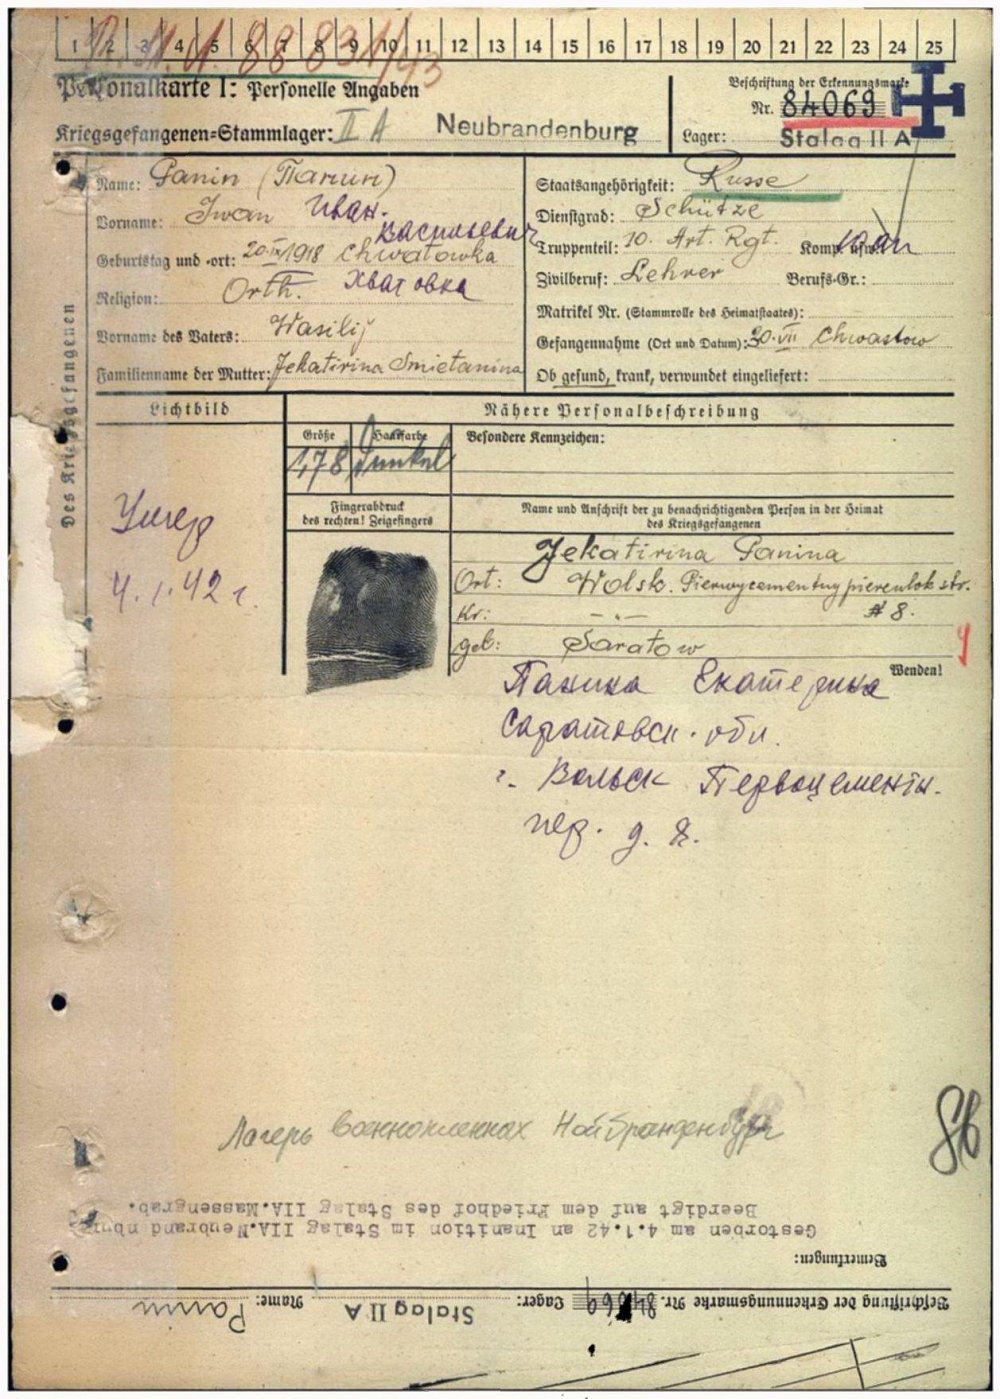 1 2 3 4 5 6 7 8 9 10 11 12 13 14 15 16 17 18 19 20 21 22 23 24 25
88831/43
Personalkarte I: Personelle Angaben
Kriegsgefangenen-Stammlager: II A Neubrandenburg
Beschriftung der Erkennungsmarke
Nr. 84069
Lager: Stalag II A
Des Kriegsgefangenen
Name: Panin (Панин)
Vorname: Iwan Иван
Васильевич
Geburtstag und -ort: 20.IX 1918 Chwatowka
Religion: Orth. Хватовка
Vorname des Vaters: Wasilij
Familienname der Mutter: Jekatirina Smietanina
Staatsangehörigkeit: Russe
Dienstgrad: Schütze
Truppenteil: 10. Art. Rgt. Komp. usw.:
Zivilberuf: Lehrer Berufs-Gr.:
Matrikel Nr. (Stammrolle des Heimatstaates):
Gefangennahme (Ort und Datum): 30.VII Chwastow
Ob gesund, krank, verwundet eingeliefert:
Lichtbild
Nähere Personalbeschreibung
Größe Haarfarbe Besondere Kennzeichen:
1,78 Dunkel
Fingerabdruck
des rechten! Zeigefingers
Name und Anschrift der zu benachrichtigenden Person in der Heimat
des Kriegsgefangenen
Умер
4.1.42 г.
Jekatirina Panina
Ort: Wolsk. Pierwycementny pierenlok str.
Kr: -"- # 8.
geb: Saratow
Wenden!
Панина Екатерина
Саратовск. обл.
г. Вольск Первоцементн.
пер. д. 8.
Лагерь военнопленных Нойбранденбург
86
Beschriftung der Erkennungsmarke Nr. 84069 Lager: Stalag II A Name: Panin
Bemerkungen:
Gestorben am 4.1.42 an Inanition im Stalag IIA.Neubrandenburg
Beerdigt auf dem Friedhof des Stalag IIA.Massengrab.